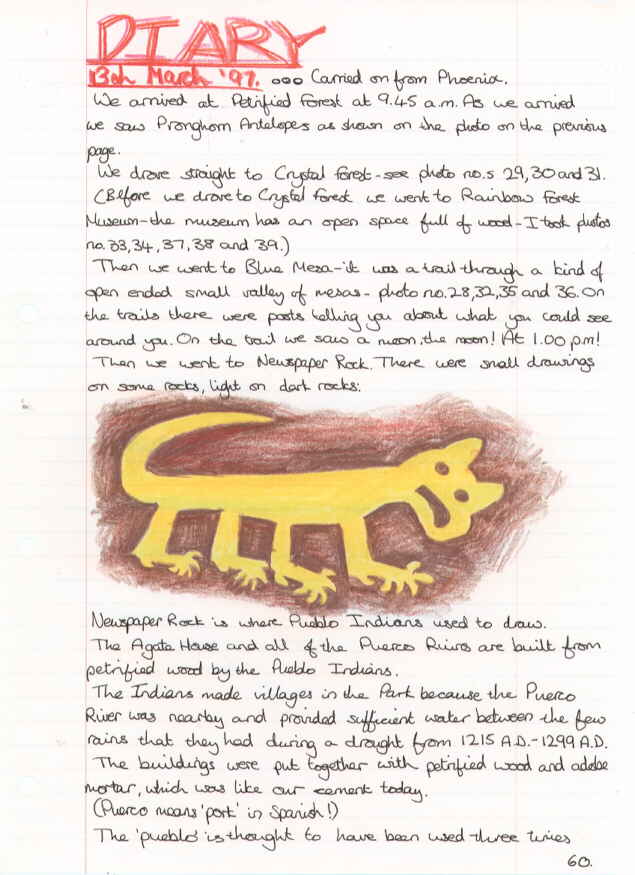 DIARY
13th March '97. ooo Carried on from Phoenix.
We arrived at Petrified Forest at 9.45 a.m. As we arrived
we saw Pronghorn Antelopes as shown on the photo on the previous
page.
We drove straight to Crystal Forest - see photo no.s 29, 30 and 31.
(Before we drove to Crystal Forest we went to Rainbow Forest
Museum - the museum has an open space full of wood - I took photos
no. 33, 34, 37, 38 and 39.)
Then we went to Blue Mesa - it was a trail through a kind of
open ended small valley of mesas - photo no. 28, 32, 35 and 36. On
the trails there were posts telling you about what you could see
around you. On the trail we saw a moon, the moon! At 1.00 pm!
Then we went to Newspaper Rock. There were small drawings
on some rocks, light on dark rocks:
Newspaper Rock is where Pueblo Indians used to draw.
The Agate House and all of the Puerco Ruins are built from
petrified wood by the Pueblo Indians.
The Indians made villages in the Park because the Puerco
River was nearby and provided sufficient water between the few
rains that they had during a drought from 1215 A.D. - 1299 A.D.
The buildings were put together with petrified wood and adobe
mortar, which was like our cement today.
(Puerco means 'pork' in Spanish!)
The 'pueblo' is thought to have been used three times
60.